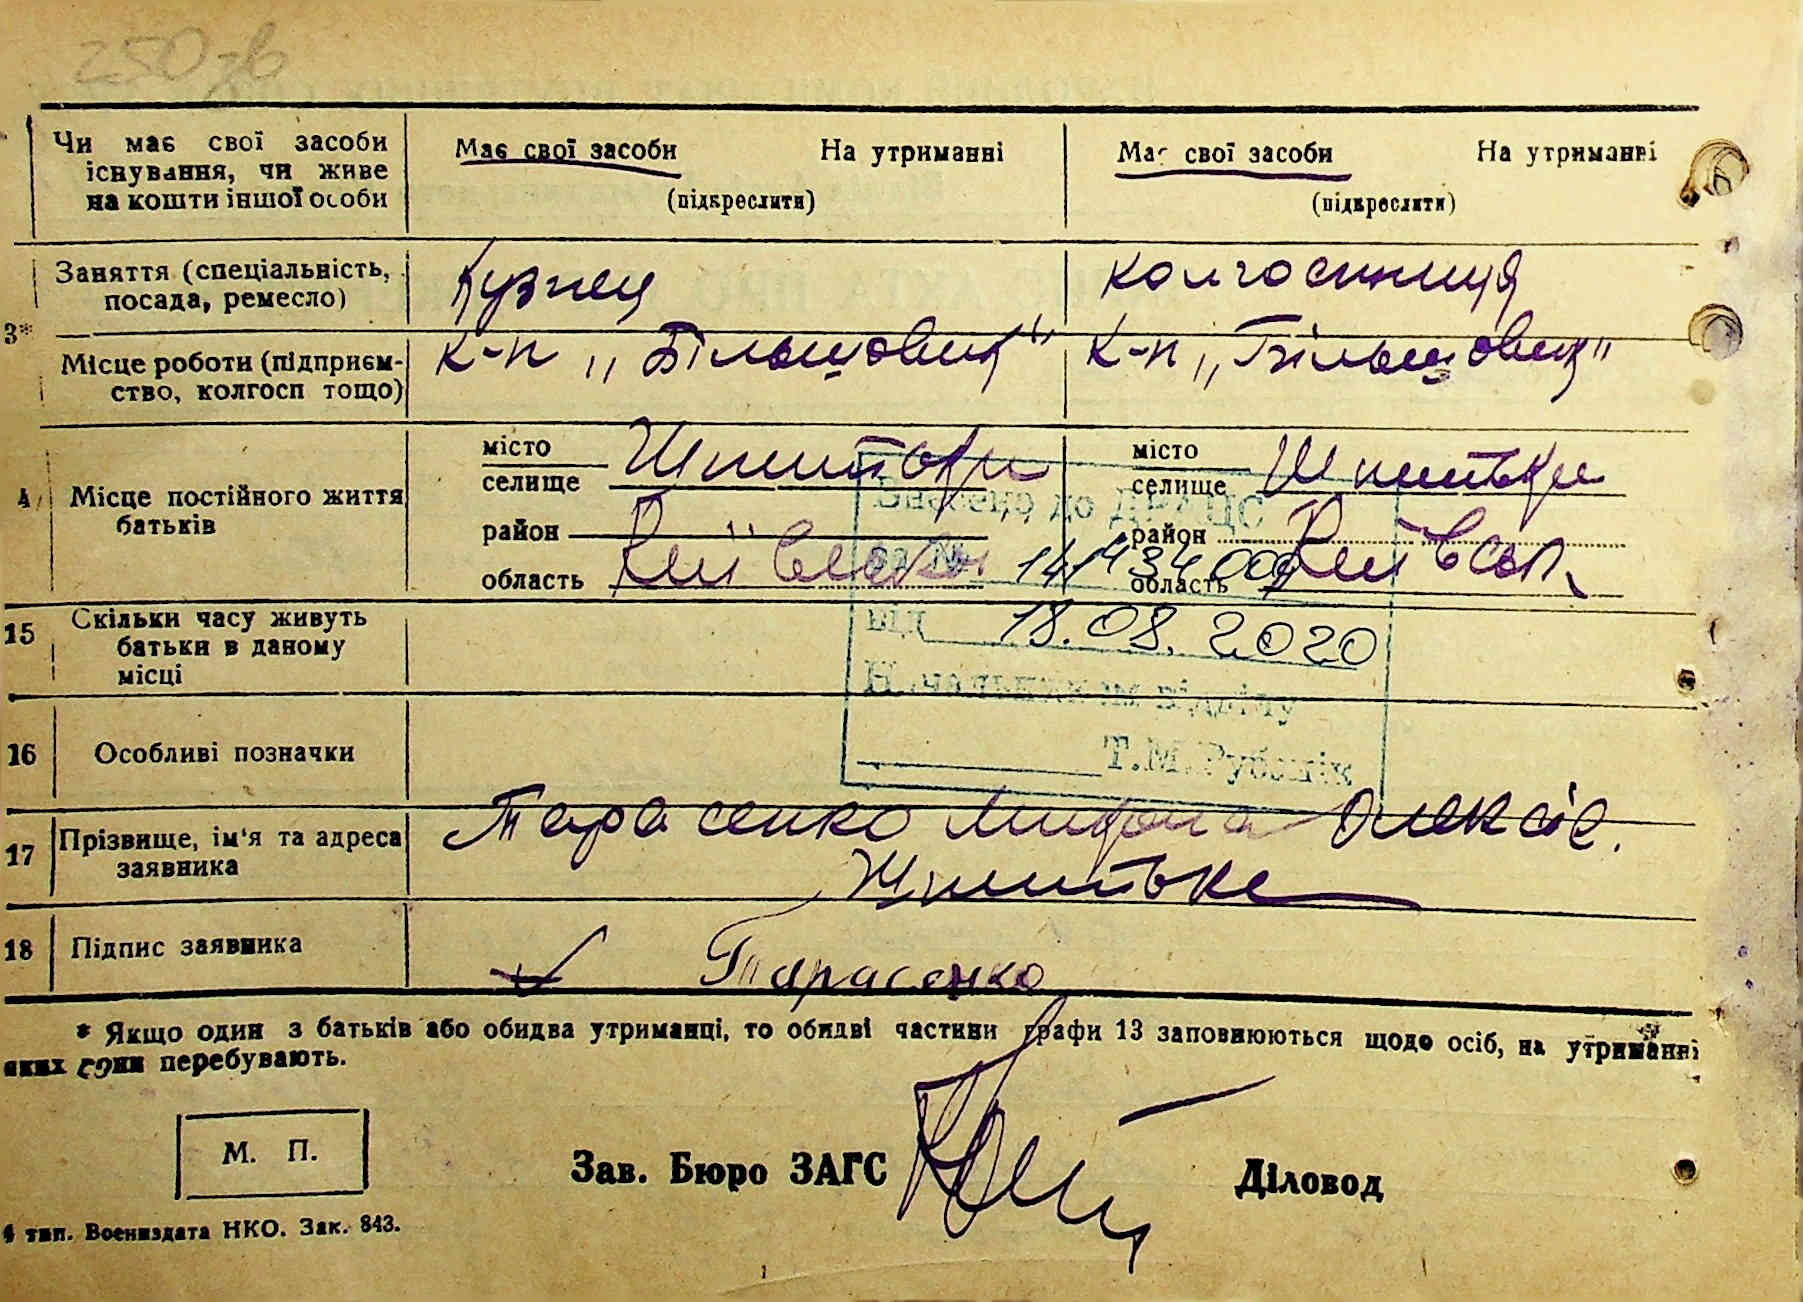 250 зв
Чи має свої засоби
існування, чи живе
на кошти іншої особи
Має свої засоби На утриманні
(підкреслити)
Має свої засоби На утриманні
(підкреслити)
3*
Заняття (спеціальність,
посада, ремесло)
Кузнец
колгоспниця
Місце роботи (підприєм-
ство, колгосп тощо)
к-п „Більшовик"
к-п „Більшовик"
4
Місце постійного життя
батьків
місто
селище
Шпитьки
район
область
Київська
місто
селище
Шпитьки
район
область
Київськ.
Внесено до ДРАЦС
за № 1414
від 18.08.2020
Начальником відділу
Т.М.
15
Скільки часу живуть
батьки в даному
місці
16
Особливі позначки
17
Прізвище, ім'я та адреса
заявника
Тарасенко Олексіє.
Шпитьке
18
Підпис заявника
Тарасенко
* Якщо один з батьків або обидва утриманці, то обидві частини графи 13 заповнюються щодо осіб, на утриманні
яких вони перебувають.
М. П.
Зав. Бюро ЗАГС
Діловод
4 тип. Воениздата НКО. Зак. 843.